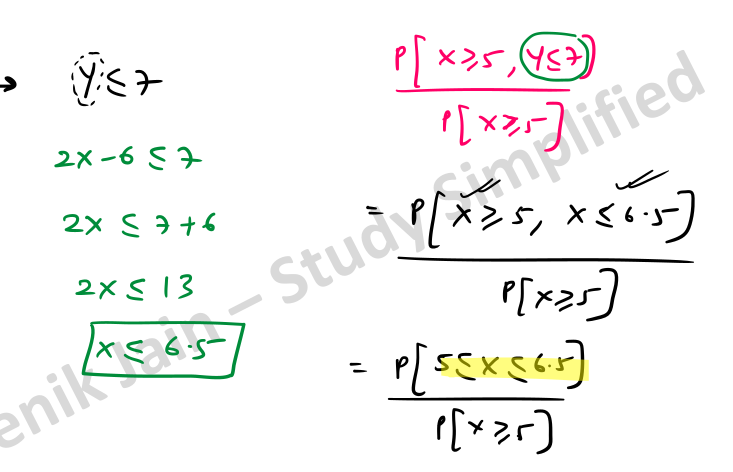 → Y ≤ 7
2x - 6 ≤ 7
2x ≤ 7 + 6
2x ≤ 13
x ≤ 6.5
P[ x ≥ 5, Y ≤ 7 ]
P[ x ≥ 5 ]
= P[ x ≥ 5, x ≤ 6.5 ]
P[ x ≥ 5 ]
= P[ 5 ≤ x ≤ 6.5 ]
P[ x ≥ 5 ]
enik Jain – Study Simplified